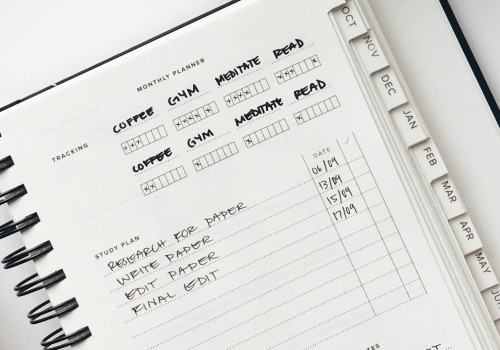 MONTHLY PLANNER
TRACKING
COFFEE GYM MEDITATE READ
COFFEE GYM MEDITATE READ
STUDY PLAN DATE ✓
RESEARCH FOR PAPER 06/09
WRITE PAPER 13/09
EDIT PAPER 15/09
FINAL EDIT 17/09
OCT
NOV
DEC
JAN
FEB
MAR
APR
MAY